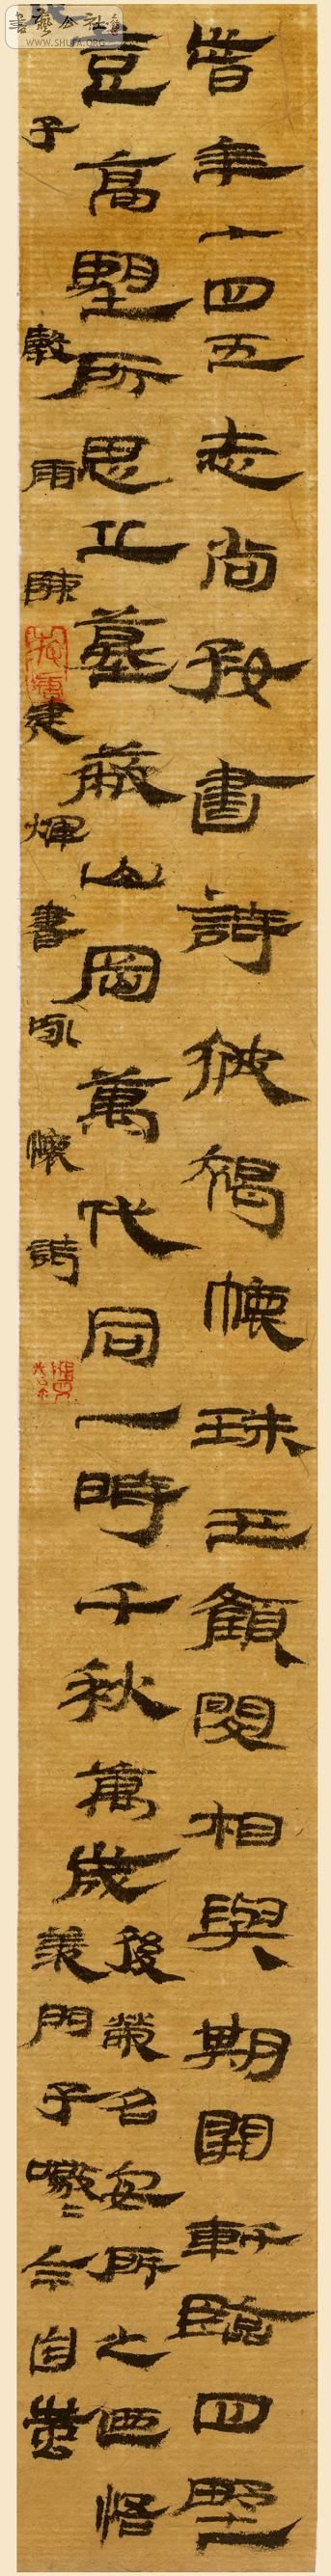 書藝公社
WWW.SHUFA.ORG
昔年十四五志尚好書詩被褐懷珠玉顏閔相與期開軒臨四野
登高望所思丘墓蔽山岡萬代同一時千秋萬歲
後榮名安所之迺悟
羨門子噭〻今自蚩
子穀雨陳建輝書咏懷詩